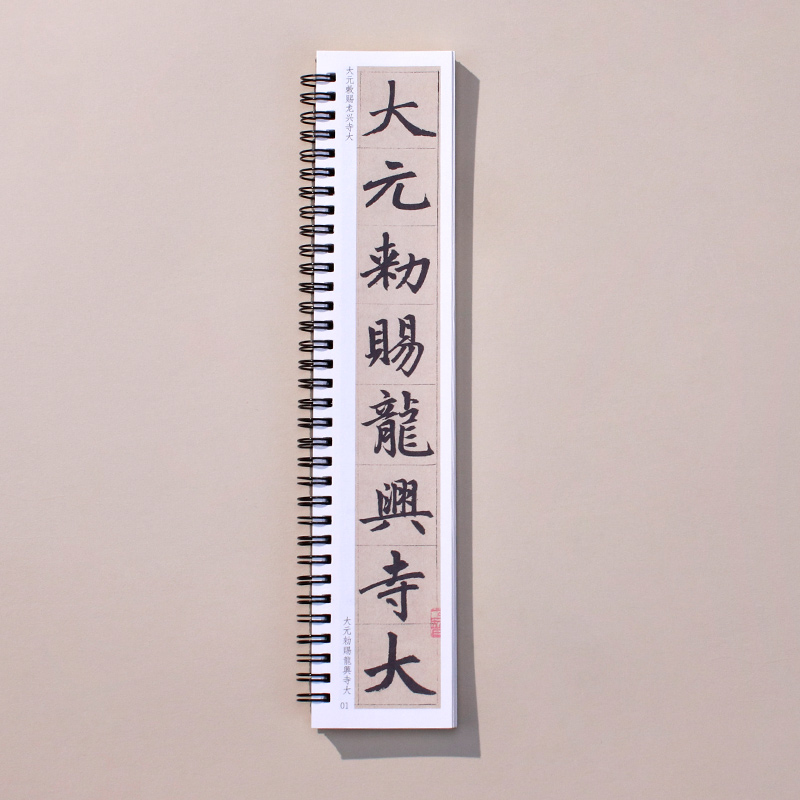 大元敕赐龙兴寺大
大元勑賜龍興寺大
大元勑賜龍興寺大
01